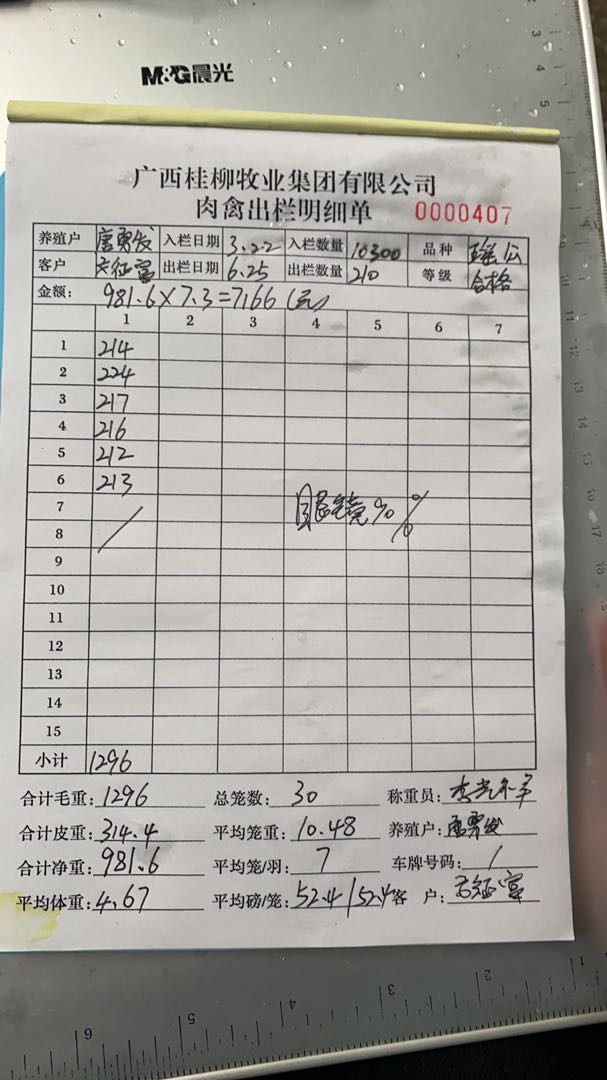 M&G晨光
广西桂柳牧业集团有限公司
肉禽出栏明细单 0000407
养殖户 唐勇发 入栏日期 3.22 入栏数量 10300 品种 瑶公
客户 出栏日期 6.25 出栏数量 210 等级 合格
金额: 981.6×7.3=7166(元)
1 2 3 4 5 6 7
1 214
2 224
3 217
4 216
5 212
6 213
7
8
9
10
11
12
13
14
15
小计 1296
合计毛重: 1296 总笼数: 30 称重员:
合计皮重: 314.4 平均笼重: 10.48 养殖户: 唐勇发
合计净重: 981.6 平均笼/羽: 7 车牌号码: /
平均体重: 4.67 平均磅/笼: 52.4/52.4 客 户: